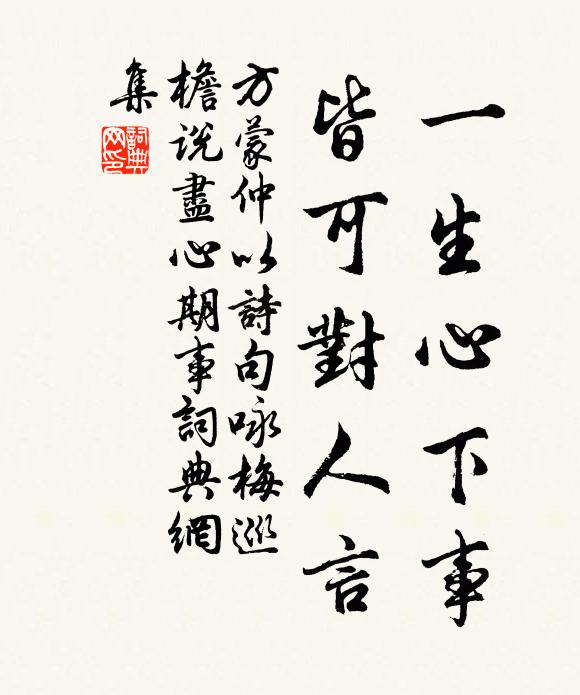 一生心下事
皆可對人言
方蒙仲以詩句咏梅巡
檐説盡心期事詞典網
集
詞典
网印